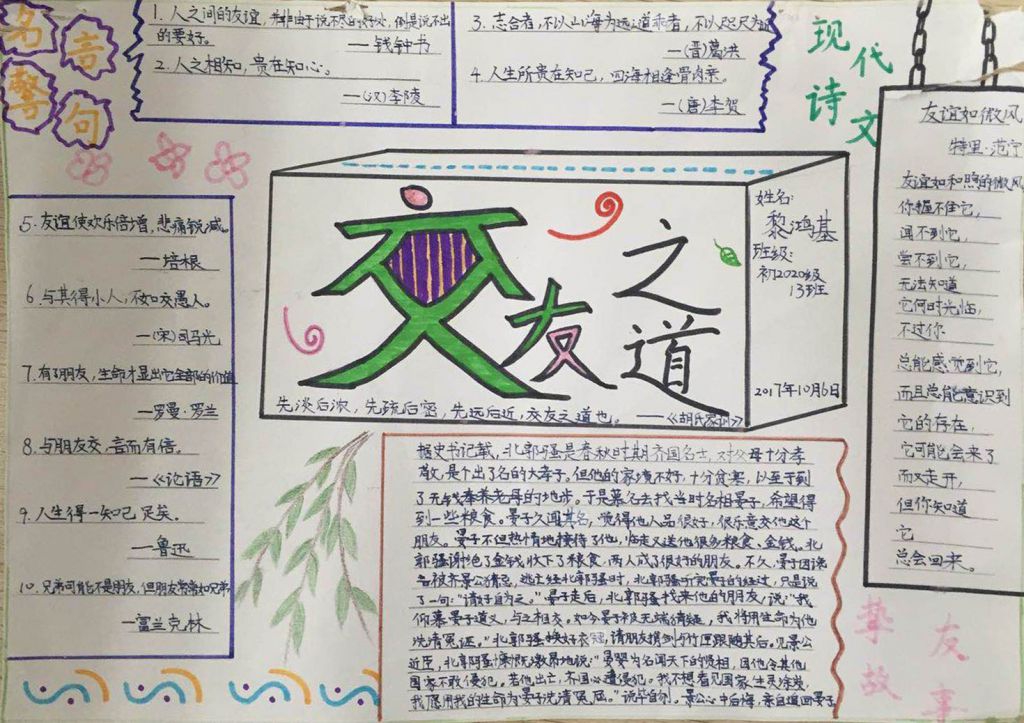 名言警句
1. 人之间的友谊,并非由于说不尽的好处,倒是说不出
的要好。
—钱钟书
2. 人之相知,贵在知心。
—(汉)李陵
3. 志合者,不以山海为远;道乖者,不以咫尺为近
—(晋)葛洪
4. 人生所贵在知己,四海相逢骨肉亲。
—(唐)李贺
现代
诗文
友谊如微风
特里·范宁
友谊如和煦的微风
你握不住它,
闻不到它,
尝不到它,
无法知道
它何时光临,
不过你
总能感觉到它,
而且总能意识到
它的存在,
它可能会来了
而又走开,
但你知道
它
总会回来。
5. 友谊使欢乐倍增,悲痛锐减。
—培根
6. 与其得小人,不如交愚人。
—(宋)司马光
7. 有了朋友,生命才显出它全部的价值
—罗曼·罗兰
8. 与朋友交,言而有信。
—《论语》
9. 人生得一知己足矣。
—鲁迅
10. 兄弟可能不是朋友,但朋友常常如兄弟
—富兰克林
交友之道
先淡后浓,先疏后密,先远后近,交友之道也。——《胡氏家训》
姓名:
黎鸿基
班级:
初2020级
13班
2017年10月6日
据史书记载,北郭骚是春秋时期齐国名士,对父母十分孝
敬,是个出了名的大孝子。但他的家境不好,十分贫寒,以至于到
了无钱奉养老母的地步。于是慕名去找当时名相晏子,希望得
到一些粮食。晏子久闻其名,觉得他人品很好,很乐意交他这个
朋友。晏子不但热情地接待了他,临走又送他很多粮食、金钱。北
郭骚谢绝了金钱,收下了粮食,两人成了很好的朋友。不久,晏子因
名被齐景公猜忌,逃亡经北郭骚时,北郭骚听完晏子的经过,只是说
了一句:"请好自为之。"晏子走后,北郭骚找来他的朋友,说:"我
仰慕晏子道义,与之相交。如今晏子被无端猜疑,我将用生命为他
洗清冤诬。"北郭骚换好衣冠,请朋友捧剑与竹匣跟随其后。见景公
近臣,北郭骚慷慨激昂地说:"晏婴为名闻天下的贤相,因他令其他
国家不敢侵犯。若他出亡,齐国必遭侵犯。我不想看见国家生灵涂炭,
我愿用我的生命为晏子洗清冤屈。"说毕自刎。景公心中后悔,亲自追回晏子
挚友
故事